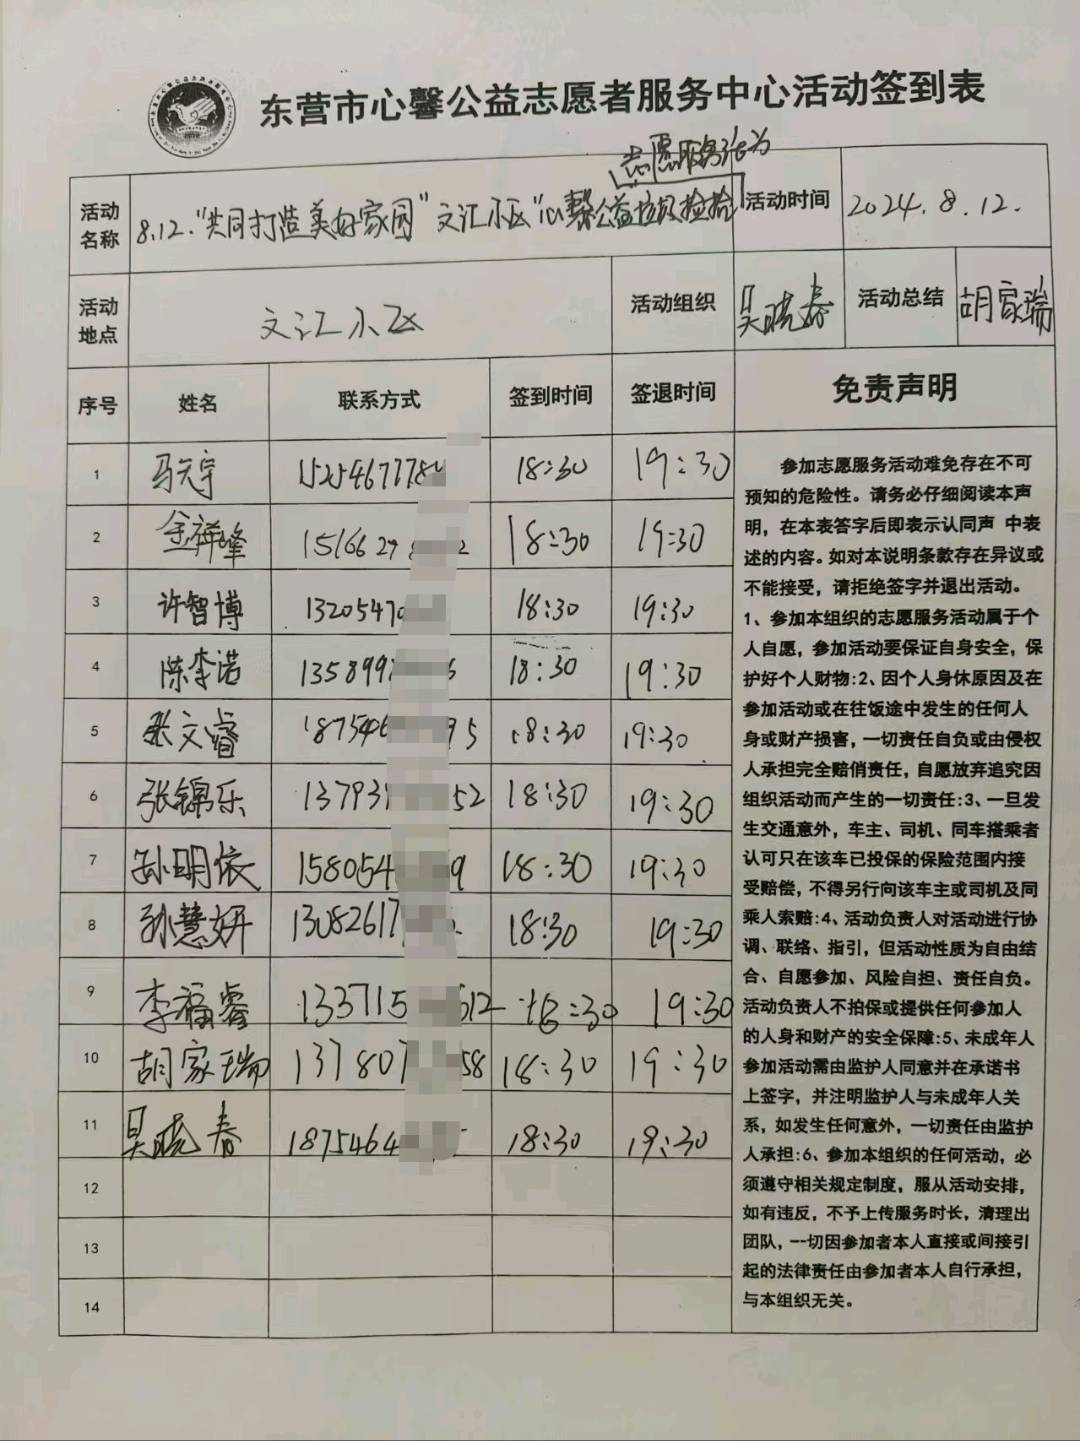 东营市心馨公益志愿者服务中心活动签到表
志愿服务活动
活动名称 8.12."共同打造美好家园"文汇小区"心馨公益垃圾捡拾 活动时间 2024.8.12.
活动地点 文汇小区 活动组织 吴晓春 活动总结 胡家瑞
序号 姓名 联系方式 签到时间 签退时间
1 马元宇 1525467778 18:30 19:30
2 金祥峰 15166 27 8 2 18:30 19:30
3 许智博 13205470 18:30 19:30
4 陈李诺 135899 18:30 19:30
5 张文睿 187546 95 18:30 19:30
6 张锦乐 137931 52 18:30 19:30
7 孙明依 158054 9 18:30 19:30
8 孙慧妍 13082617 18:30 19:30
9 李福睿 133715 612 18:30 19:30
10 胡家瑞 137807 58 18:30 19:30
11 吴晓春 1875464 18:30 19:30
12
13
14
免责声明
参加志愿服务活动难免存在不可
预知的危险性。请务必仔细阅读本声
明，在本表签字后即表示认同声 中表
述的内容。如对本说明条款存在异议或
不能接受，请拒绝签字并退出活动。
1、参加本组织的志愿服务活动属于个
人自愿，参加活动要保证自身安全，保
护好个人财物:2、因个人身休原因及在
参加活动或在往饭途中发生的任何人
身或财产损害，一切责任自负或由侵权
人承担完全赔俏责任，自愿放弃追究因
组织活动而产生的一切责任:3、一旦发
生交通意外，车主、司机、同车搭乘者
认可只在该车已投保的保险范围内接
受赔偿，不得另行向该车主或司机及同
乘人索赔:4、活动负责人对活动进行协
调、联络、指引，但活动性质为自由结
合、自愿参加、风险自担、责任自负。
活动负责人不拍保或提供任何参加人
的人身和财产的安全保障:5、未成年人
参加活动需由监护人同意并在承诺书
上签字，并注明监护人与未成年人关
系，如发生任何意外，一切责任由监护
人承担:6、参加本组织的任何活动，必
须遵守相关规定制度，服从活动安排，
如有违反，不予上传服务时长，清理出
团队，一切因参加者本人直接或间接引
起的法律责任由参加者本人自行承担，
与本组织无关。